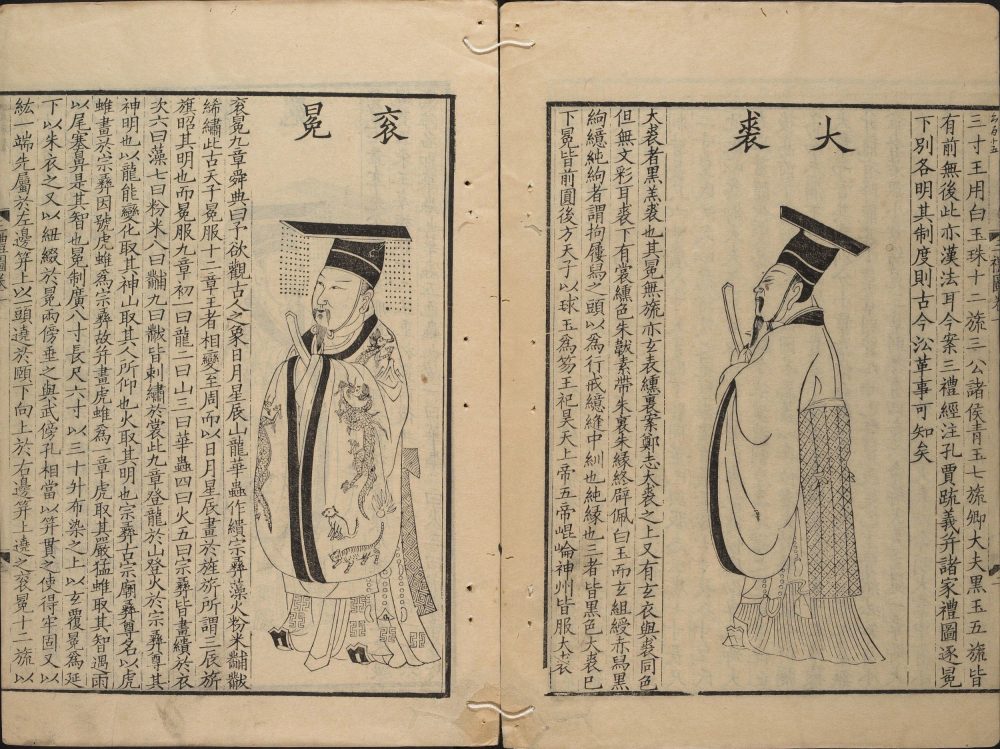 三寸王用白玉珠十二旒三公諸侯青玉七旒卿大夫黑玉五旒皆
有前無後此亦漢法耳今案三禮經注孔賈疏義并諸家禮圖逐冕
下別各明其制度則古今沿革事可知矣
大裘
大裘者黑羔裘也其冕無旒亦玄表纁裏案鄭志大裘之上又有玄衣與裘同色
但無文彩耳裘下有裳纁色朱韍素帶朱裏朱緣終辟佩白玉而玄組綬赤舄黑
絇繶純絇者謂拘屨舄之頭以為行戒繶縫中紃也純緣也三者皆黑色大裘已
下冕皆前圓後方天子以球玉為笏王祀昊天上帝五帝崐崘神州皆服大裘
袞冕
袞冕九章舜典曰予欲觀古人之象日月星辰山龍華蟲作繢宗彝藻火粉米黼黻
絺繡此古天子冕服十二章王者相變至周而以日月星辰畫於旌旂所謂三辰旂
旗昭其明也而冕服九章初一曰龍二曰山三曰華蟲四曰火五曰宗彝皆畫繢於衣
次六曰藻七曰粉米八曰黼九曰黻皆刺繡於裳此九章登龍於山登火於宗彝尊其
神明也以龍能變化取其神山取其人所仰也火取其明也宗彝古宗廟彝尊名以虎
蜼畫於宗彝因號虎蜼為宗彝故并畫虎蜼為一章虎取其嚴猛蜼取其智遇雨
以尾塞鼻是其智也冕制廣八寸長尺六寸以三十升布染之上以玄覆冕為延
下以朱衣之又以紐綴於冕兩傍垂之與武傍孔相當以筓貫之使得牢固又以
紘一端先屬於左邊筓上以一頭遶於頤下向上於右邊筓上遶之袞冕十二旒以